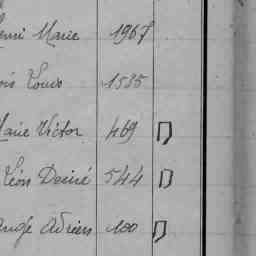 Henri Marie 1967
Louis 1535
Marie Victor 469
Léon Désiré 544
Ange Adrien 100